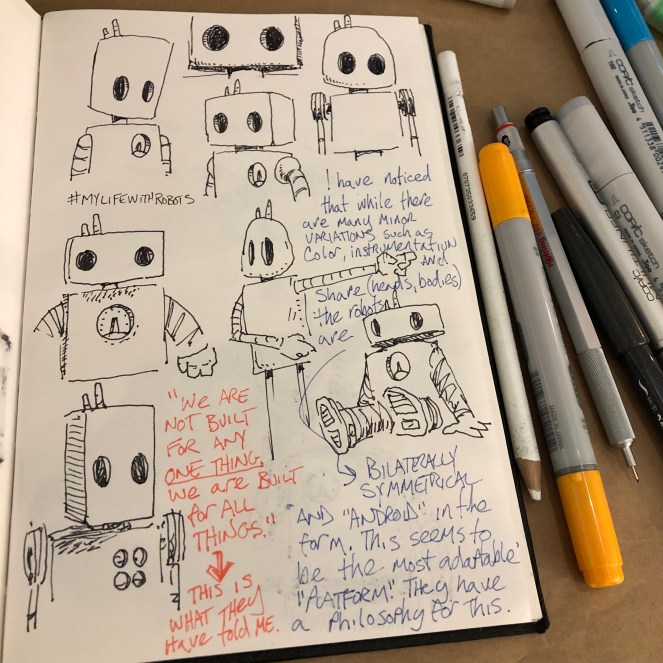 #MYLIFEWITHROBOTS
I have noticed
that while there
are many MINOR
VARIATIONS such as
Color, instrumentation
AND
Shape (heads, bodies)
the robots
are
BILATERALLY
SYMMETRICAL
AND "ANDROID" in the
form. This seems to
be the most adaptable
"PLATFORM". They have
a Philosophy for this.
"We ARE
NOT BUILT
FOR ANY
ONE THING,
We are BUILT
for ALL
THINGS."
THIS IS
WHAT THEY
Have told ME.
COPIC sketch
COPIC sketch
COPIC